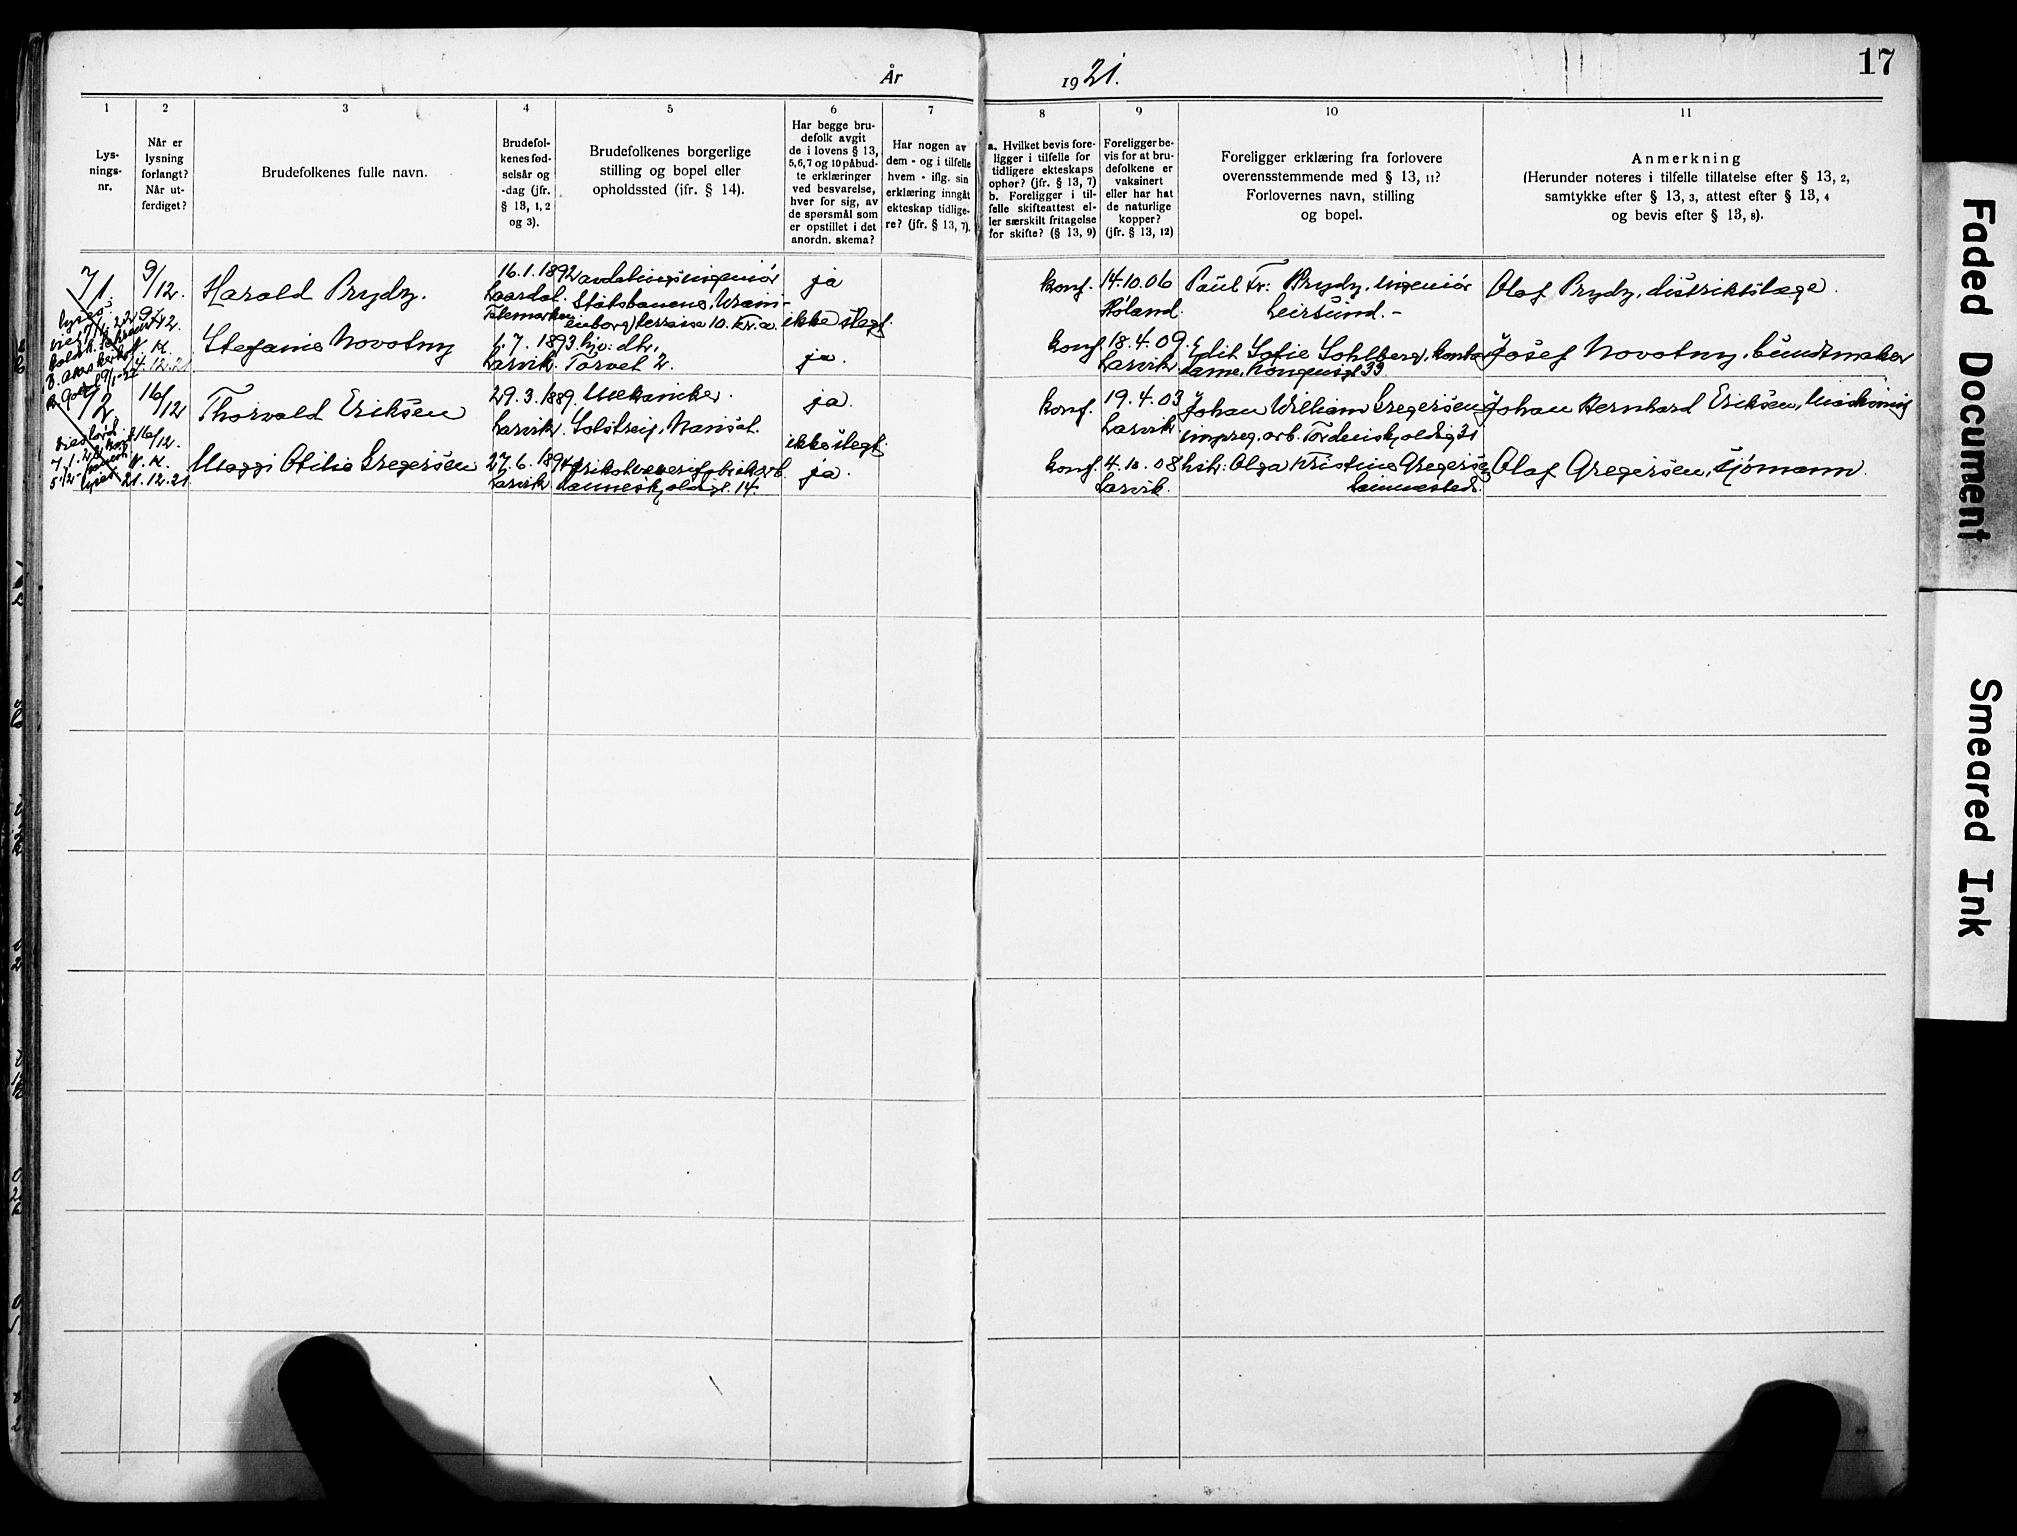 17
År 1921.
1
Lys-
nings-
nr.
2
Når er
lysning
forlangt?
Når ut-
ferdiget?
3
Brudefolkenes fulle navn.
4
Brudefol-
kenes fød-
selsår og
-dag (jfr.
§ 13, 1, 2
og 3).
5
Brudefolkenes borgerlige
stilling og bopel eller
opholdssted (jfr. § 14).
6
Har begge bru-
defolk avgit
de i lovens § 13,
5, 6, 7 og 10 påbud-
te erklæringer
ved besvarelse,
hver for sig, av
de spørsmål som
er opstillet i det
anordn. skema?
7
Har nogen av
dem - og i tilfelle
hvem - iflg. sin
erklæring inngåt
ekteskap tidlige-
re? (jfr. § 13, 7).
8
a. Hvilket bevis fore-
ligger i tilfelle for
tidligere ekteskaps
ophør? (jfr. § 13, 7)
b. Foreligger i til-
felle skifteattest el-
ler særskilt fritagelse
for skifte? (§ 13, 9)
9
Foreligger be-
vis for at bru-
defolkene er
vaksinert
eller har hat
de naturlige
kopper?
(jfr. § 13, 12)
10
Foreligger erklæring fra forlovere
overensstemmende med § 13, 11?
Forlovernes navn, stilling
og bopel.
11
Anmerkning
(Herunder noteres i tilfelle tillatelse efter § 13, 2,
samtykke efter § 13, 3, attest efter § 13, 4
og bevis efter § 13, 8).
71
9/12.
Harald Prydz.
16.1.1892
Laardal.
Telemarken
avdelingsingeniör
Statsbanene,
terrasse 10. Kr.a.
ja
ikke slegt.
konf.
14.10.06
Høland.
Paul Fr: Prydz, ingeniör
Leirsund. -
Olaf Prydz, distriktslæge.
Stefanie Novotny
7.1893.
Larvik.
hjv: dtr,
Torvet 2.
ja.
konf.
18.4.09.
Larvik
Edit Sofie Sohlberg, kontor
dame, Kongensgt 33
Josef Novotny, buntmaker
72
16/12
Thorvald Eriksen
29.3.1889.
Larvik.
Mekaniker.
Solstreif, Nanset.
ja.
ikke slegt
konf.
19.4.03
Larvik
Johan William Gregersen
impreg. arb. Tordenskjoldsgt 31
Johan Bernhard Eriksen,
16/12.
21.12.21
Maggi Otilie Gregersen
27.6.1894
Larvik
14.
ja.
konf.
4.10.08
Larvik.
hstr: Olga Kristine Gregersen
Olaf Gregersen, sjömann.
Faded Document
Smeared Ink